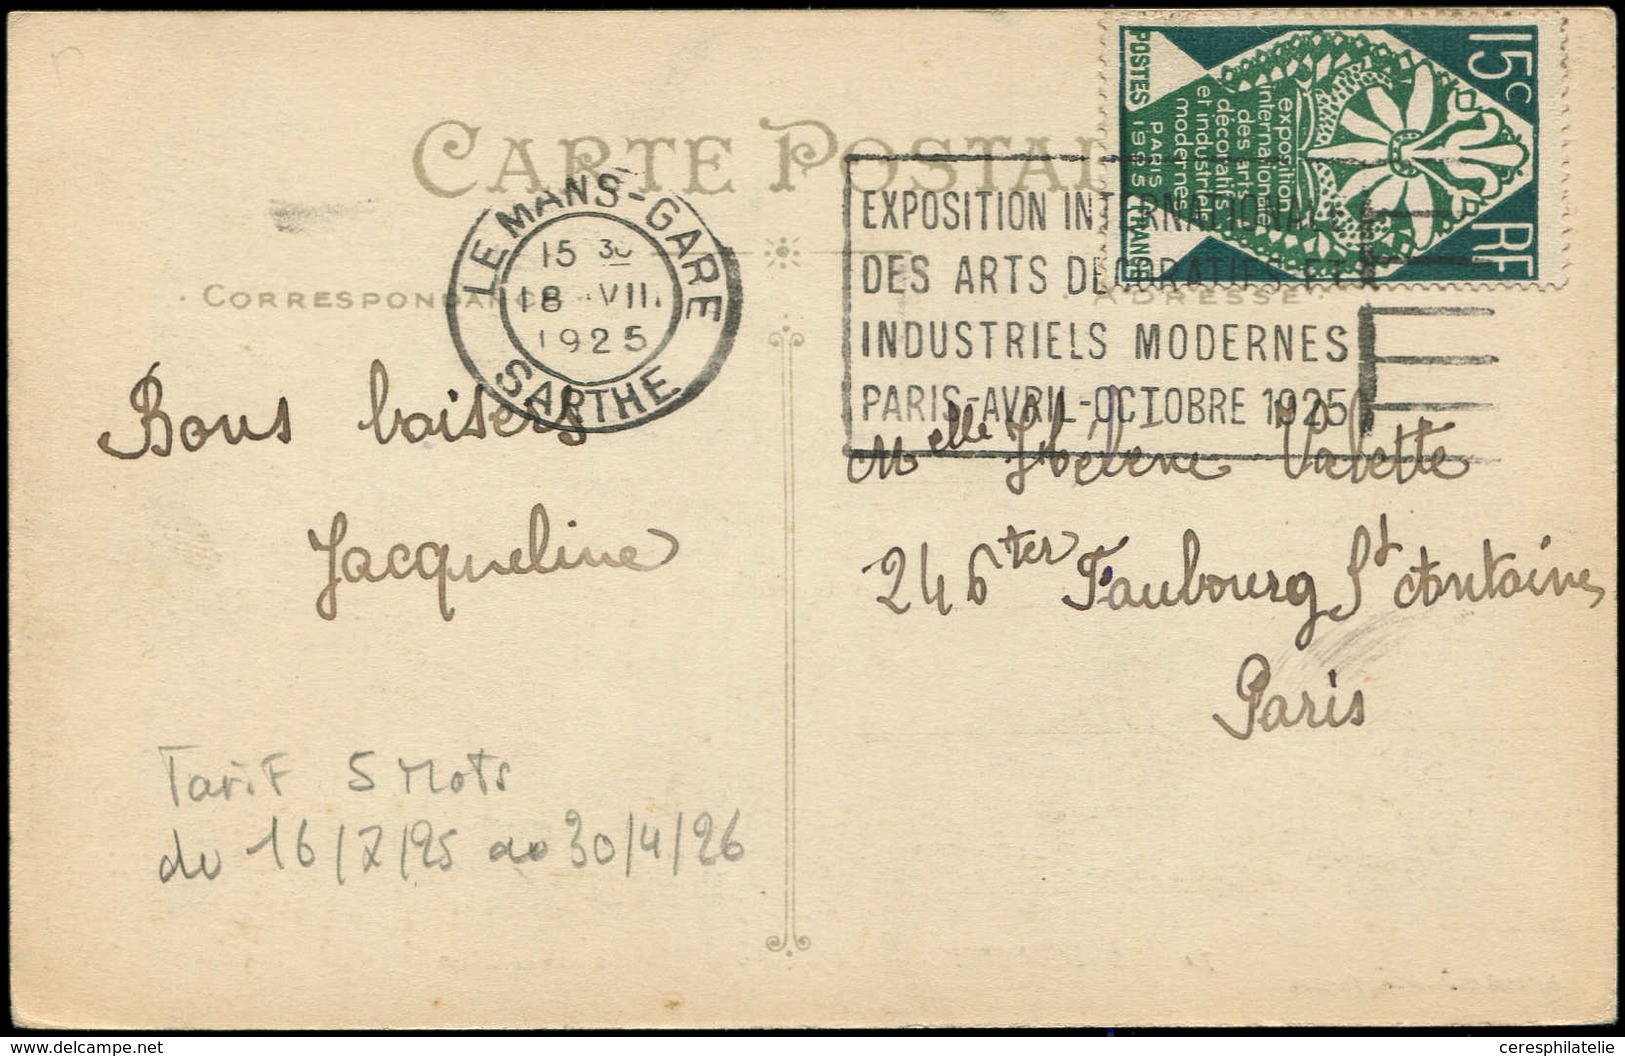 CARTE POSTALE
LE MANS-GARE
15 30
18 VII
1925
SARTHE
EXPOSITION INTERNATIONALE
DES ARTS DECORATIFS ET
INDUSTRIELS MODERNES
PARIS-AVRIL-OCTOBRE 1925
15c
RF
exposition
internationale
des arts
décoratifs
et industriels
modernes
PARIS 1925
POSTES FRANCE
CORRESPONDANCE
ADRESSE
Bons baisers
Jacqueline
Melle Hélène Valette
246 ter Faubourg St Antoine
Paris
Tarif 5 Mots
du 16/7/25 au 30/4/26
delcampe.net
ceresphilatelie